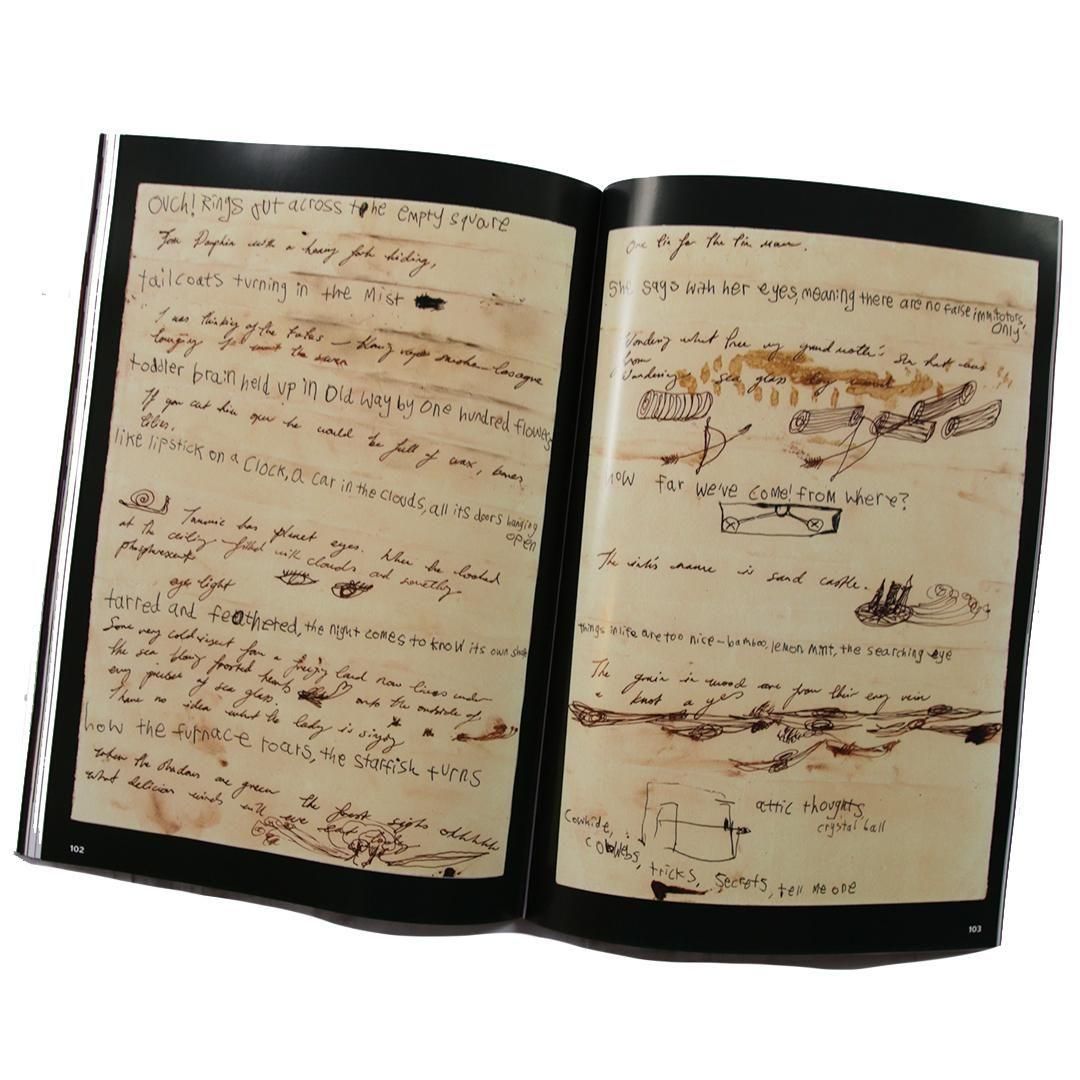 Ouch! Rings out across the empty square
with a heavy fish hiding,
tailcoats turning in the Mist
I was thinking of the
toddler brain held up in Old Way by One hundred flowers
If you cut him open he would be full of wax, bones
lilies.
like lipstick on a Clock, a car in the clouds, all its doors hanging
open
has planet eyes. When he looked
at the ceiling filled with clouds and something
phosphorescent
eye light
tarred and feathered, the night comes to know its own
Some very cold from a freezing land now lives under
the sea frosted hearts onto the outside of
every of sea glass.
I have no idea what the lady is singing
how the furnace roars, the starfish turns
when the shadows are green the forest sighs ohhhhh
what delicious winds will we eat
102
One tin for the tin man.
She says with her eyes, meaning there are no false immitators,
Only
Wondering what my grandmother's sea that was
from
Wandering sea glass
how far we've come! from where?
The name is sand castle.
things in life are too nice – bamboo, lemon mint, the searching eye
The grain in wood are from their own vein
a knot a
attic thoughts
crystal ball
Cowhide,
Cobwebs, tricks, Secrets, tell me one
103